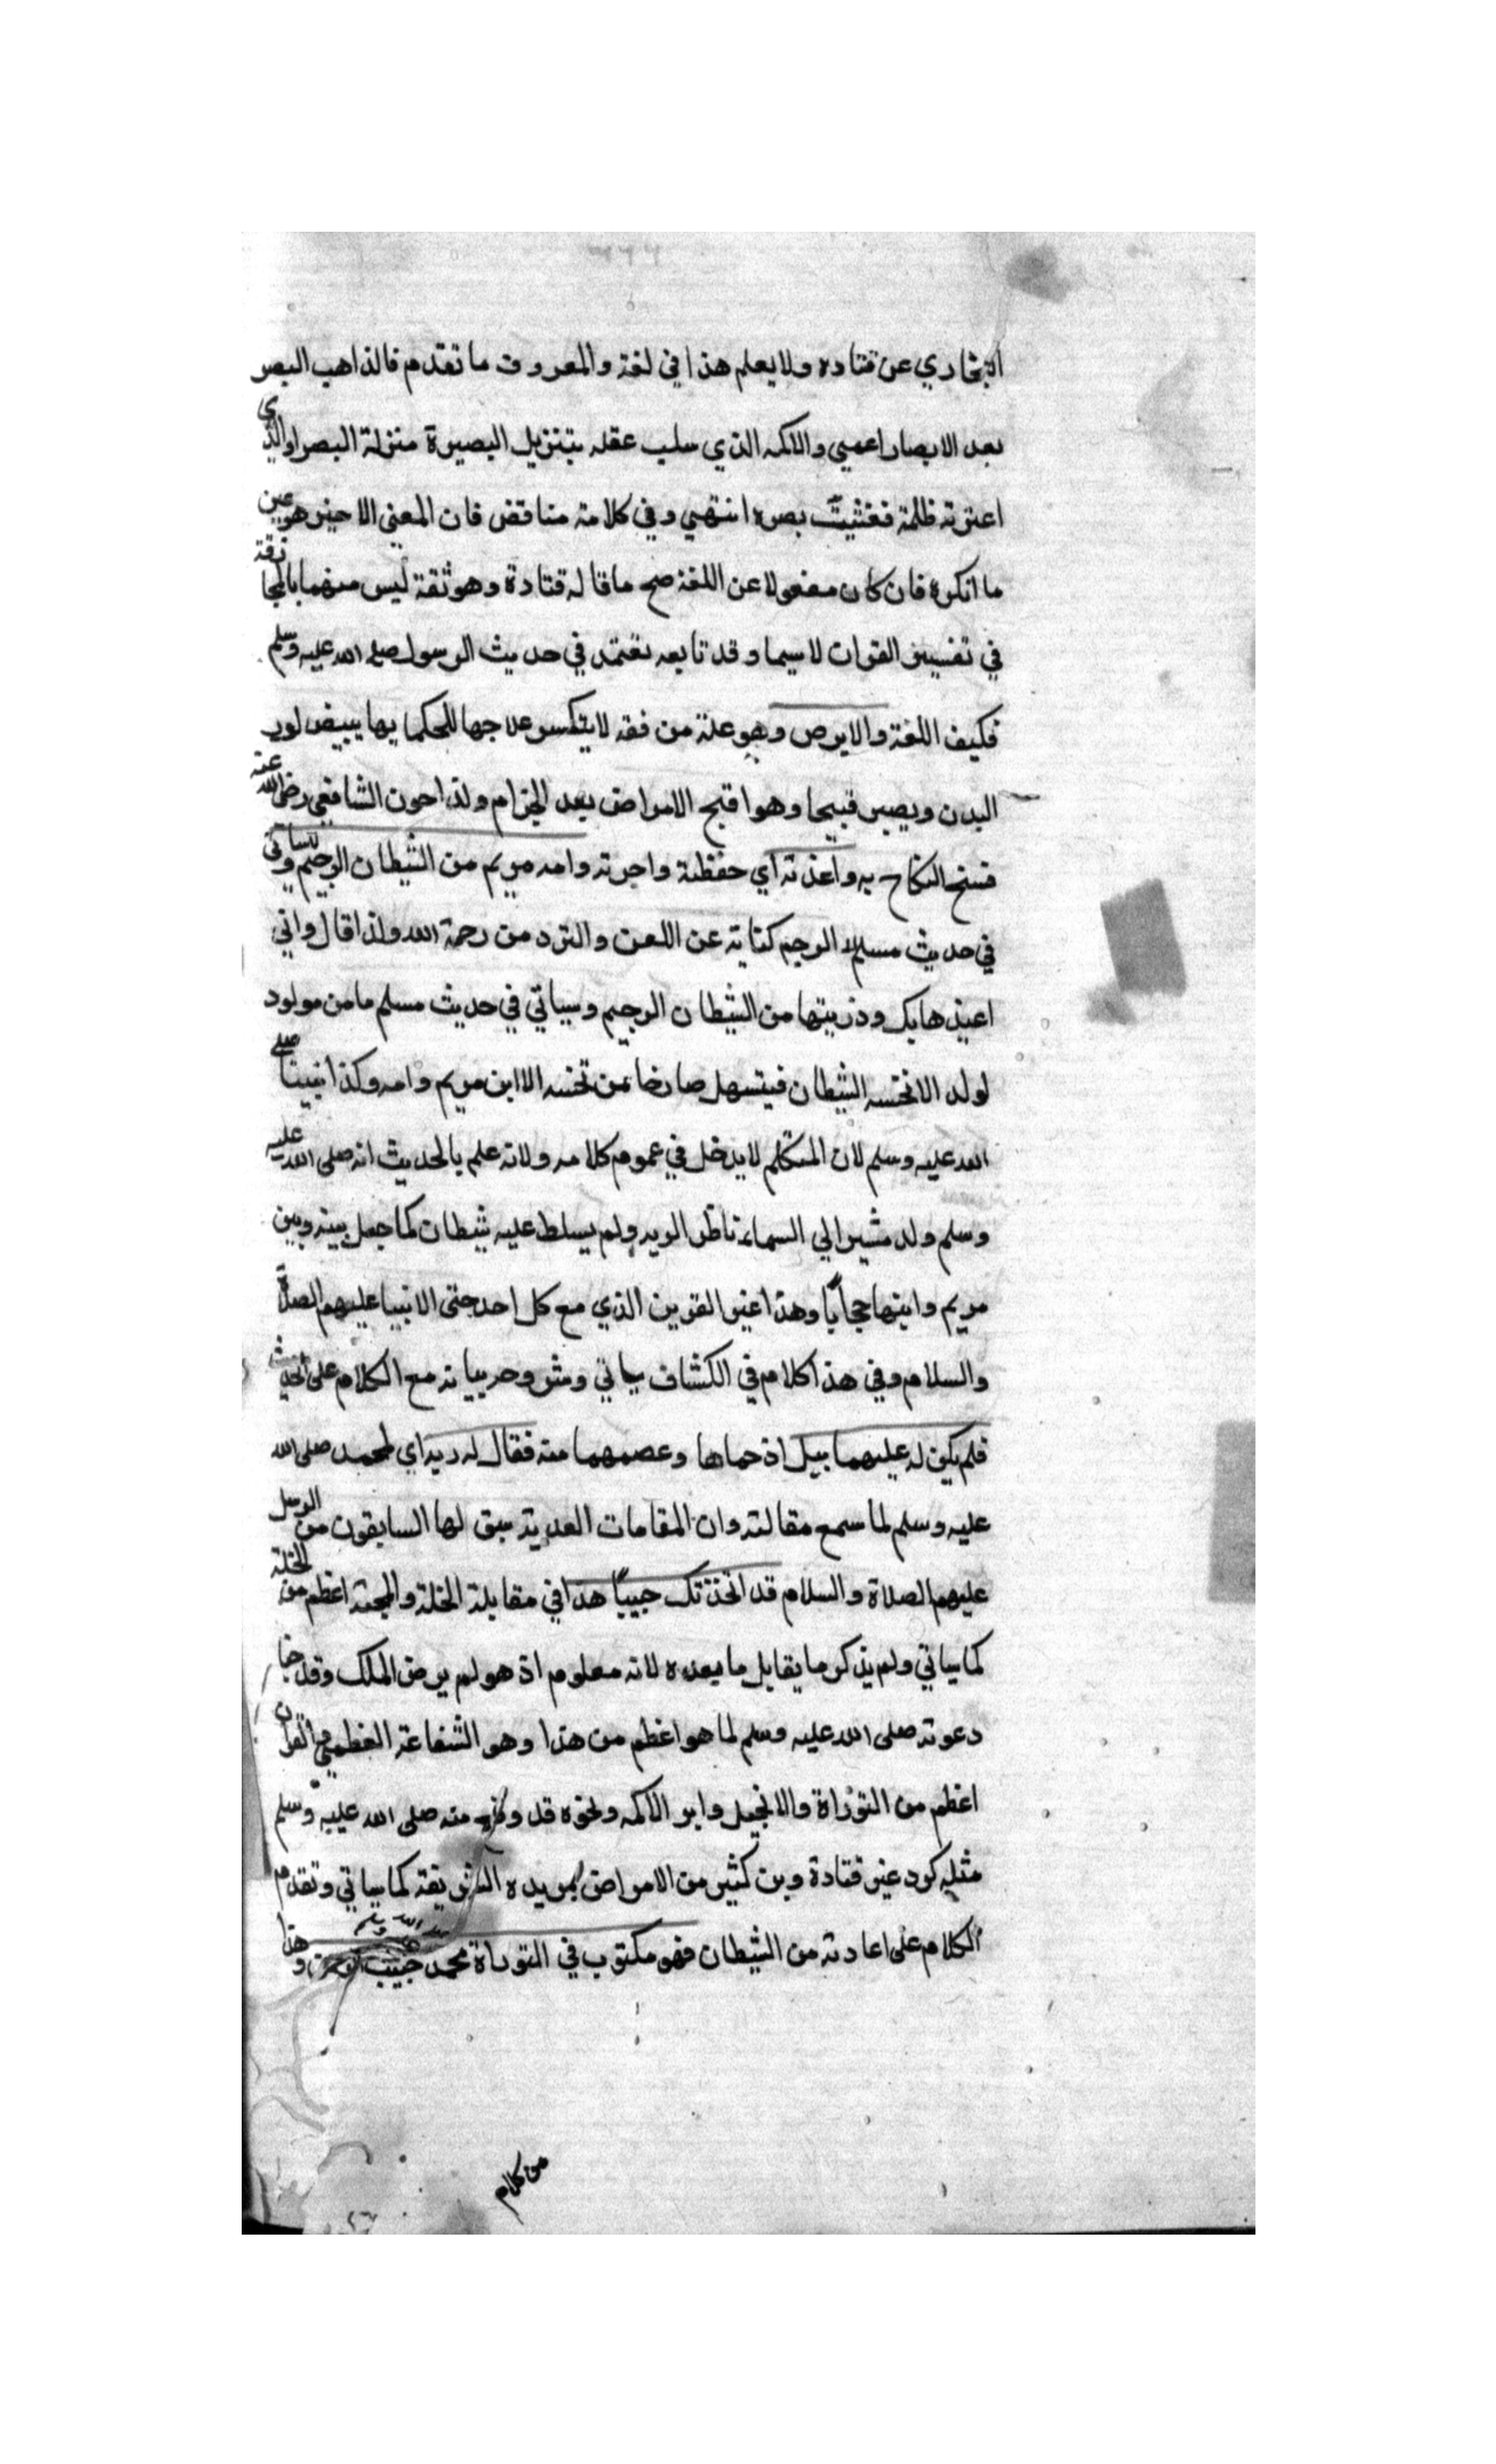 البخاري عن قتاده ولا يعلم هذا في لغة والمعروف ما تقدم فالذاهب البصر
بعد الابصار اعمي والاكمه الذي سلب عقله بتنزيل البصيرة منزلة البصر او الذي
اعترته ظلمة فغشيت بصره انتهي وفي كلامة مناقض فان المعني الاخير هو عين
ما انكره فان كان منعولا عن اللغة صح ما قاله قتادة وهو ثقة ليس منهما بالمجازفة
في تفسير القران لاسيما وقد تابعه نعتمد في حديث الرسول صلى الله عليه وسلم
فكيف اللغة والابرص وهو علة من فقه لا يتكسو علاجها للحكما بها يبيض لون
البدن ويصير قبيحا وهو اقبح الامراض بعد الجزام ولذا جون الشافعي رضي الله عنه
فسخ النكاح به واعذته اي حفظته واجرته وامه مريم من الشيطان الرجيم وسياتي
في حديث مسلم الرجيم كناية عن اللعن والترد من رحمة الله ولذا قال واني
اعيذها بك وذريتها من الشيطان الرجيم وسياتي في حديث مسلم ما من مولود
لولد الا نخسه الشيطان فيتسهل صارخا من نخسه الا ابن مريم وامه وكذا نبينا صلى
الله عليه وسلم لان المتكلم لا يدخل في عموم كلامه ولانه علم بالحديث انه صلى الله عليه
وسلم ولد مشيرا الي السماء ناظر اليه ولم يسلط عليه شيطان كما جعل بينه وبين
مريم وابنها حجابا وهذا غير القرين الذي مع كل احد حتى الانبيا عليهم الصلاة
والسلام وفي هذا كلام في الكشاف ياتي وشروحه بيانه مع الكلام على الحديث
فلم يكن له عليهما سبيل اذ حماها وعصمهما منه فقال له ربه اي لمحمد صلى الله
عليه وسلم لما سمع مقالته وان المقامات العديه سبق لها السابقون من الرسل
عليهم الصلاة والسلام قد اتخذتك حبيبا هذا في مقابلة الخلة والمحبة اعظم من الخلة
كما سياتي ولم يذكر ما يقابل ما بعده لانه معلوم اذ هو لم يرض الملك وقد خبا
دعوته صلى الله عليه وسلم لما هو اعظم من هذا وهو الشفاعة العظمي والقران
اعظم من التوراة والانجيل وابو الاكمه ونحوه قد وقع منه صلى الله عليه وسلم
مثله كرد عين قتادة وبن كثير من الامراض بيده الشريفة كما سياتي وتقدم
الكلام على اعادته من الشيطان فهو مكتوب في التوراة محمد حبيب الرحمن وهذا
من كلام